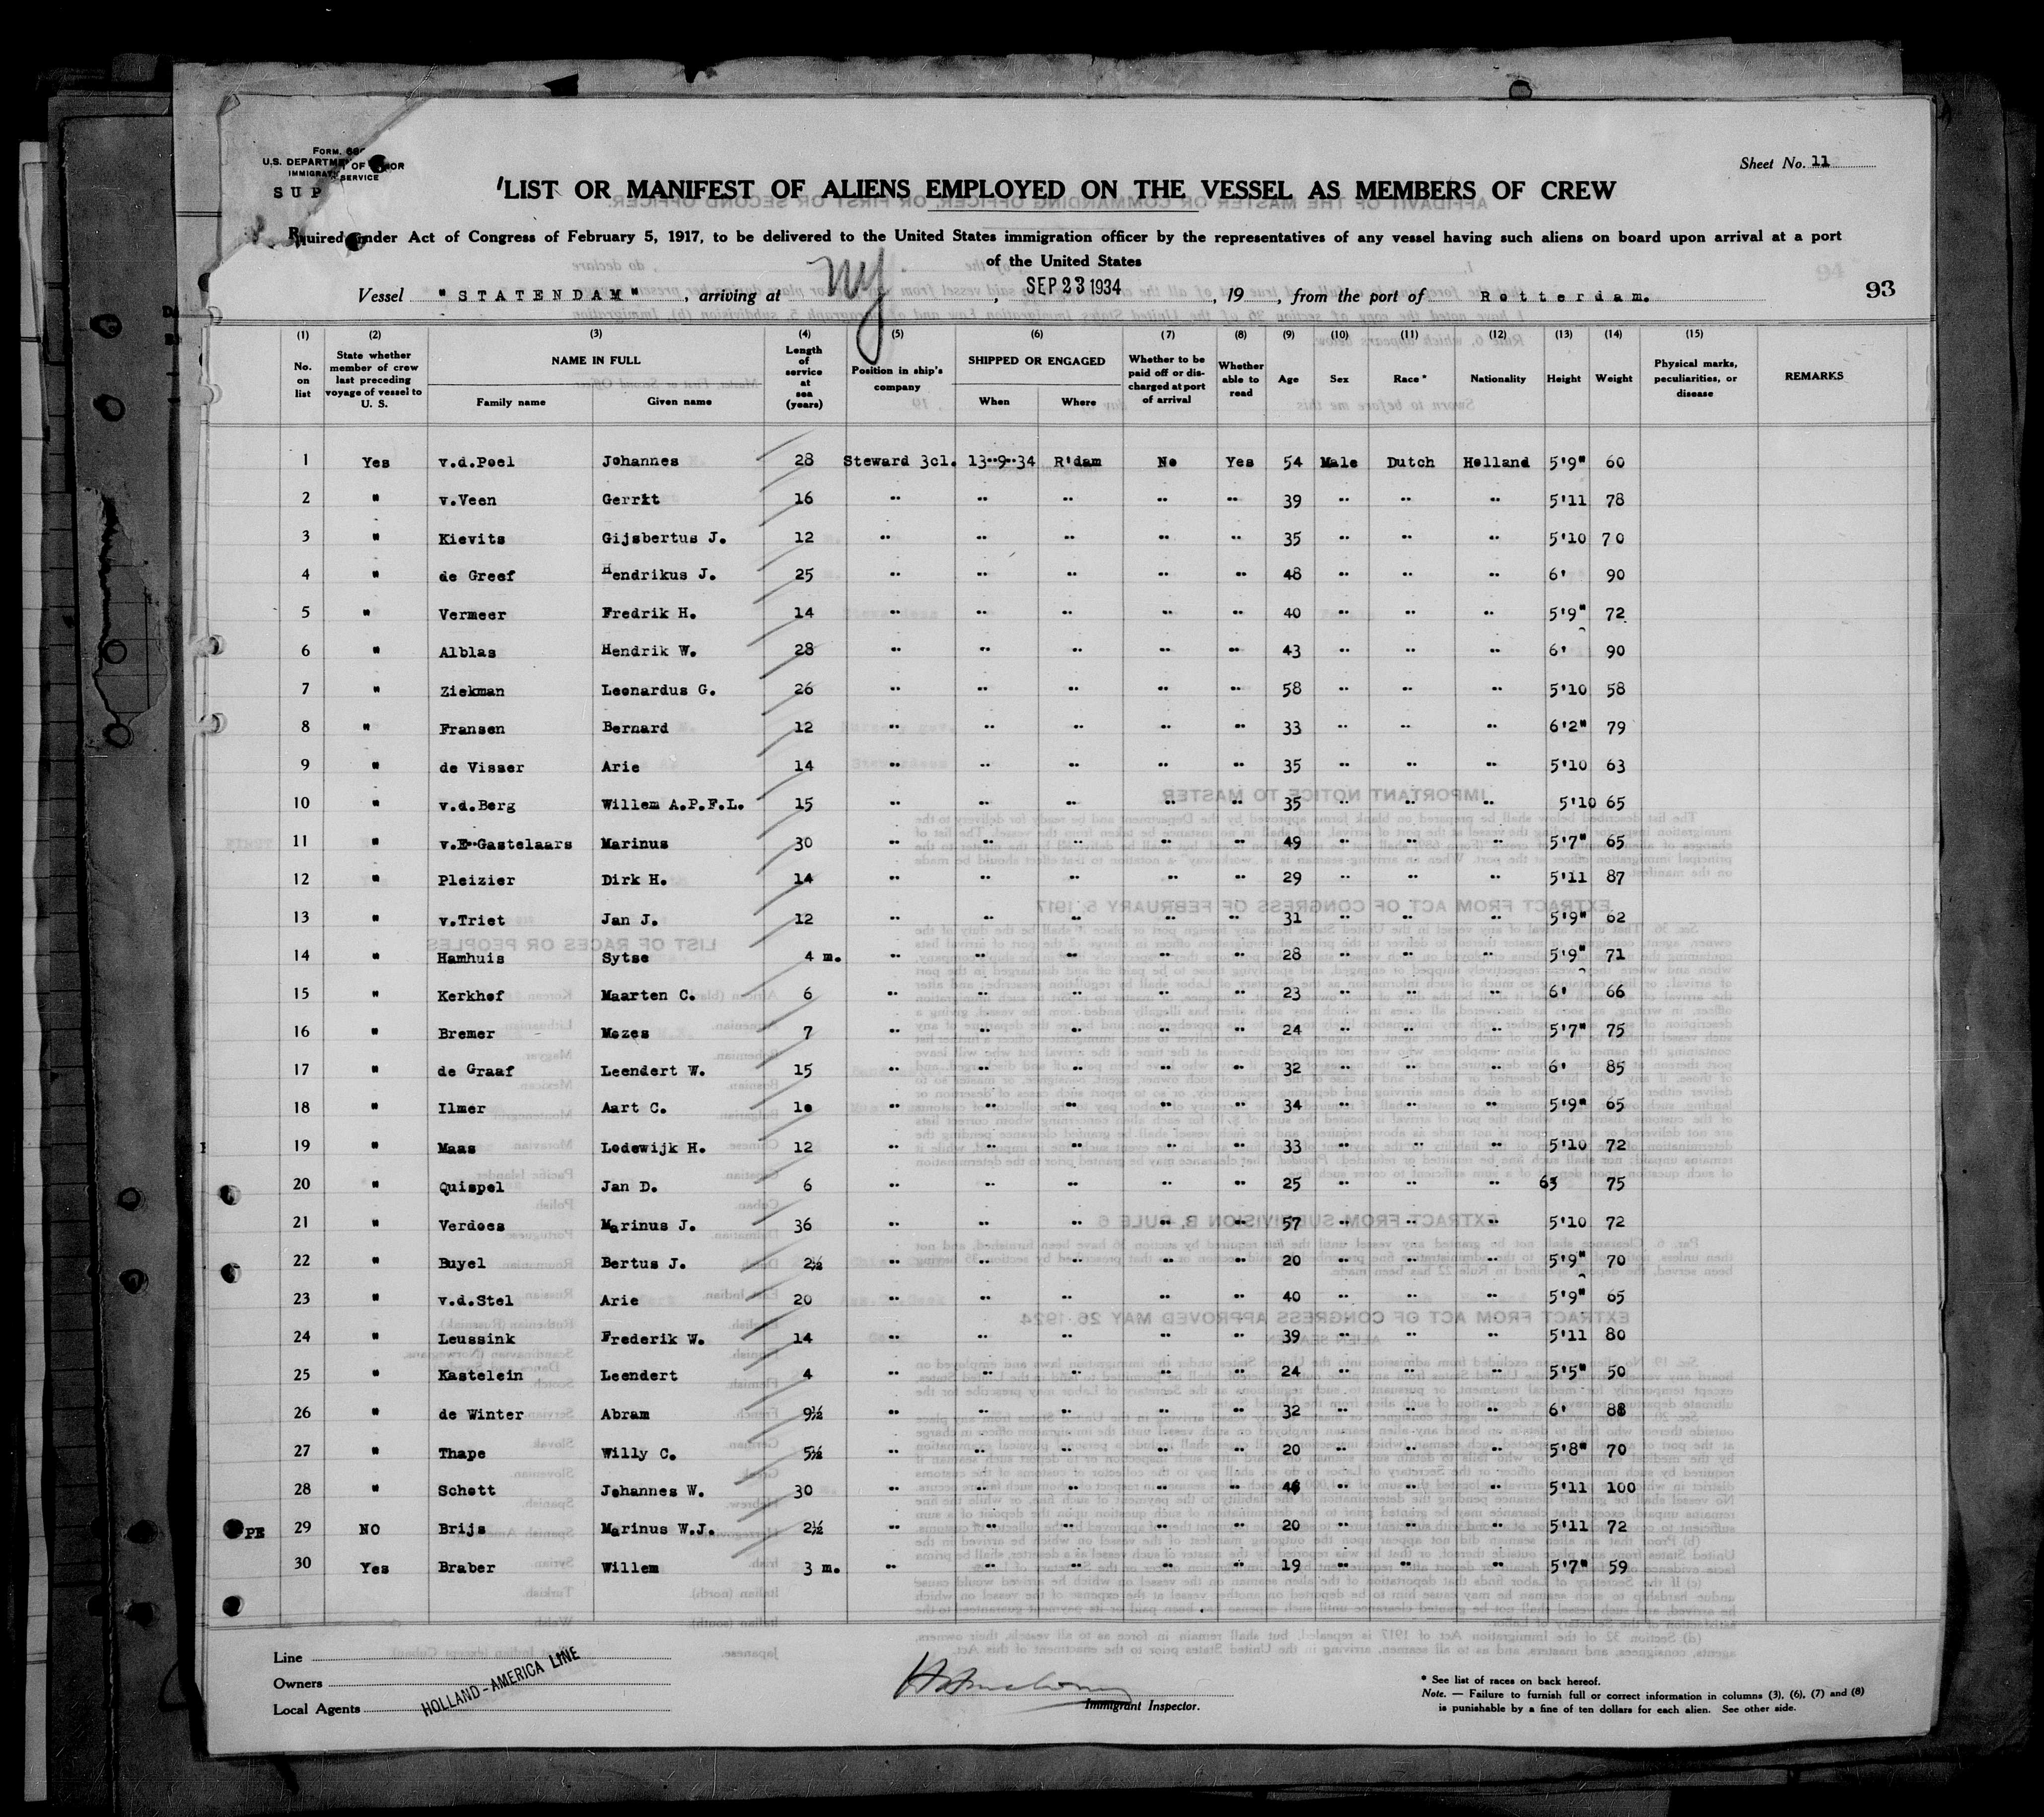 FORM. 68
U.S. DEPARTMENT OF LABOR
IMMIGRATION SERVICE
SUP
Sheet No. 11
LIST OR MANIFEST OF ALIENS EMPLOYED ON THE VESSEL AS MEMBERS OF CREW
Required under Act of Congress of February 5, 1917, to be delivered to the United States immigration officer by the representatives of any vessel having such aliens on board upon arrival at a port
of the United States
Vessel "STATENDAM", arriving at NY, SEP 23 1934, 19, from the port of Rotterdam.
93
(1) (2) (3) (4) (5) (6) (7) (8) (9) (10) (11) (12) (13) (14) (15)
No. on list | State whether member of crew last preceding voyage of vessel to U. S. | NAME IN FULL Family name Given name | Length of service at sea (years) | Position in ship's company | SHIPPED OR ENGAGED When Where | Whether to be paid off or discharged at port of arrival | Whether able to read | Age | Sex | Race * | Nationality | Height | Weight | Physical marks, peculiarities, or disease | REMARKS
1 Yes v.d.Poel Johannes 28 Steward 3cl. 13-9-34 R'dam No Yes 54 Male Dutch Holland 5'9" 60
2 " v.Veen Gerrit 16 " " " " " 39 " " " 5'11 78
3 " Kievits Gijsbertus J. 12 " " " " " 35 " " " 5'10 70
4 " de Greef Hendrikus J. 25 " " " " " 48 " " " 6' 90
5 " Vermeer Fredrik H. 14 " " " " " 40 " " " 5'9" 72
6 " Alblas Hendrik W. 28 " " " " " 43 " " " 6' 90
7 " Ziekman Leonardus G. 26 " " " " " 58 " " " 5'10 58
8 " Fransen Bernard 12 " " " " " 33 " " " 6'2" 79
9 " de Visser Arie 14 " " " " " 35 " " " 5'10 63
10 " v.d.Berg Willem A.P.F.L. 15 " " " " " 35 " " " 5'10 65
11 " v.E-Gastelaars Marinus 30 " " " " " 49 " " " 5'7" 65
12 " Pleizier Dirk H. 14 " " " " " 29 " " " 5'11 87
13 " v.Triet Jan J. 12 " " " " " 31 " " " 5'9" 62
14 " Hamhuis Sytse 4 m. " " " " " 28 " " " 5'9" 71
15 " Kerkhof Maarten C. 6 " " " " " 23 " " " 6' 66
16 " Bremer Mozes 7 " " " " " 24 " " " 5'7" 75
17 " de Graaf Leendert W. 15 " " " " " 32 " " " 6' 85
18 " Ilmer Aart C. 10 " " " " " 34 " " " 5'9" 65
19 " Maas Lodewijk H. 12 " " " " " 33 " " " 5'10 72
20 " Quispel Jan D. 6 " " " " " 25 " " " 63 75
21 " Verdoes Marinus J. 36 " " " " " 57 " " " 5'10 72
22 " Buyel Bertus J. 2½ " " " " " 20 " " " 5'9" 70
23 " v.d.Stel Arie 20 " " " " " 40 " " " 5'9" 65
24 " Leussink Frederik W. 14 " " " " " 39 " " " 5'11 80
25 " Kastelein Leendert 4 " " " " " 24 " " " 5'5" 50
26 " de Winter Abram 9½ " " " " " 32 " " " 6' 88
27 " Thape Willy C. 5½ " " " " " 20 " " " 5'8" 70
28 " Schott Johannes W. 30 " " " " " 46 " " " 5'11 100
PE 29 NO Brijs Marinus W.J. 2½ " " " " " 20 " " " 5'11 72
30 Yes Braber Willem 3 m. " " " " " 19 " " " 5'7" 59
Line
Owners
Local Agents
HOLLAND-AMERICA LINE
Immigrant Inspector.
* See list of races on back hereof.
Note. — Failure to furnish full or correct information in columns (3), (6), (7) and (8)
is punishable by a fine of ten dollars for each alien. See other side.